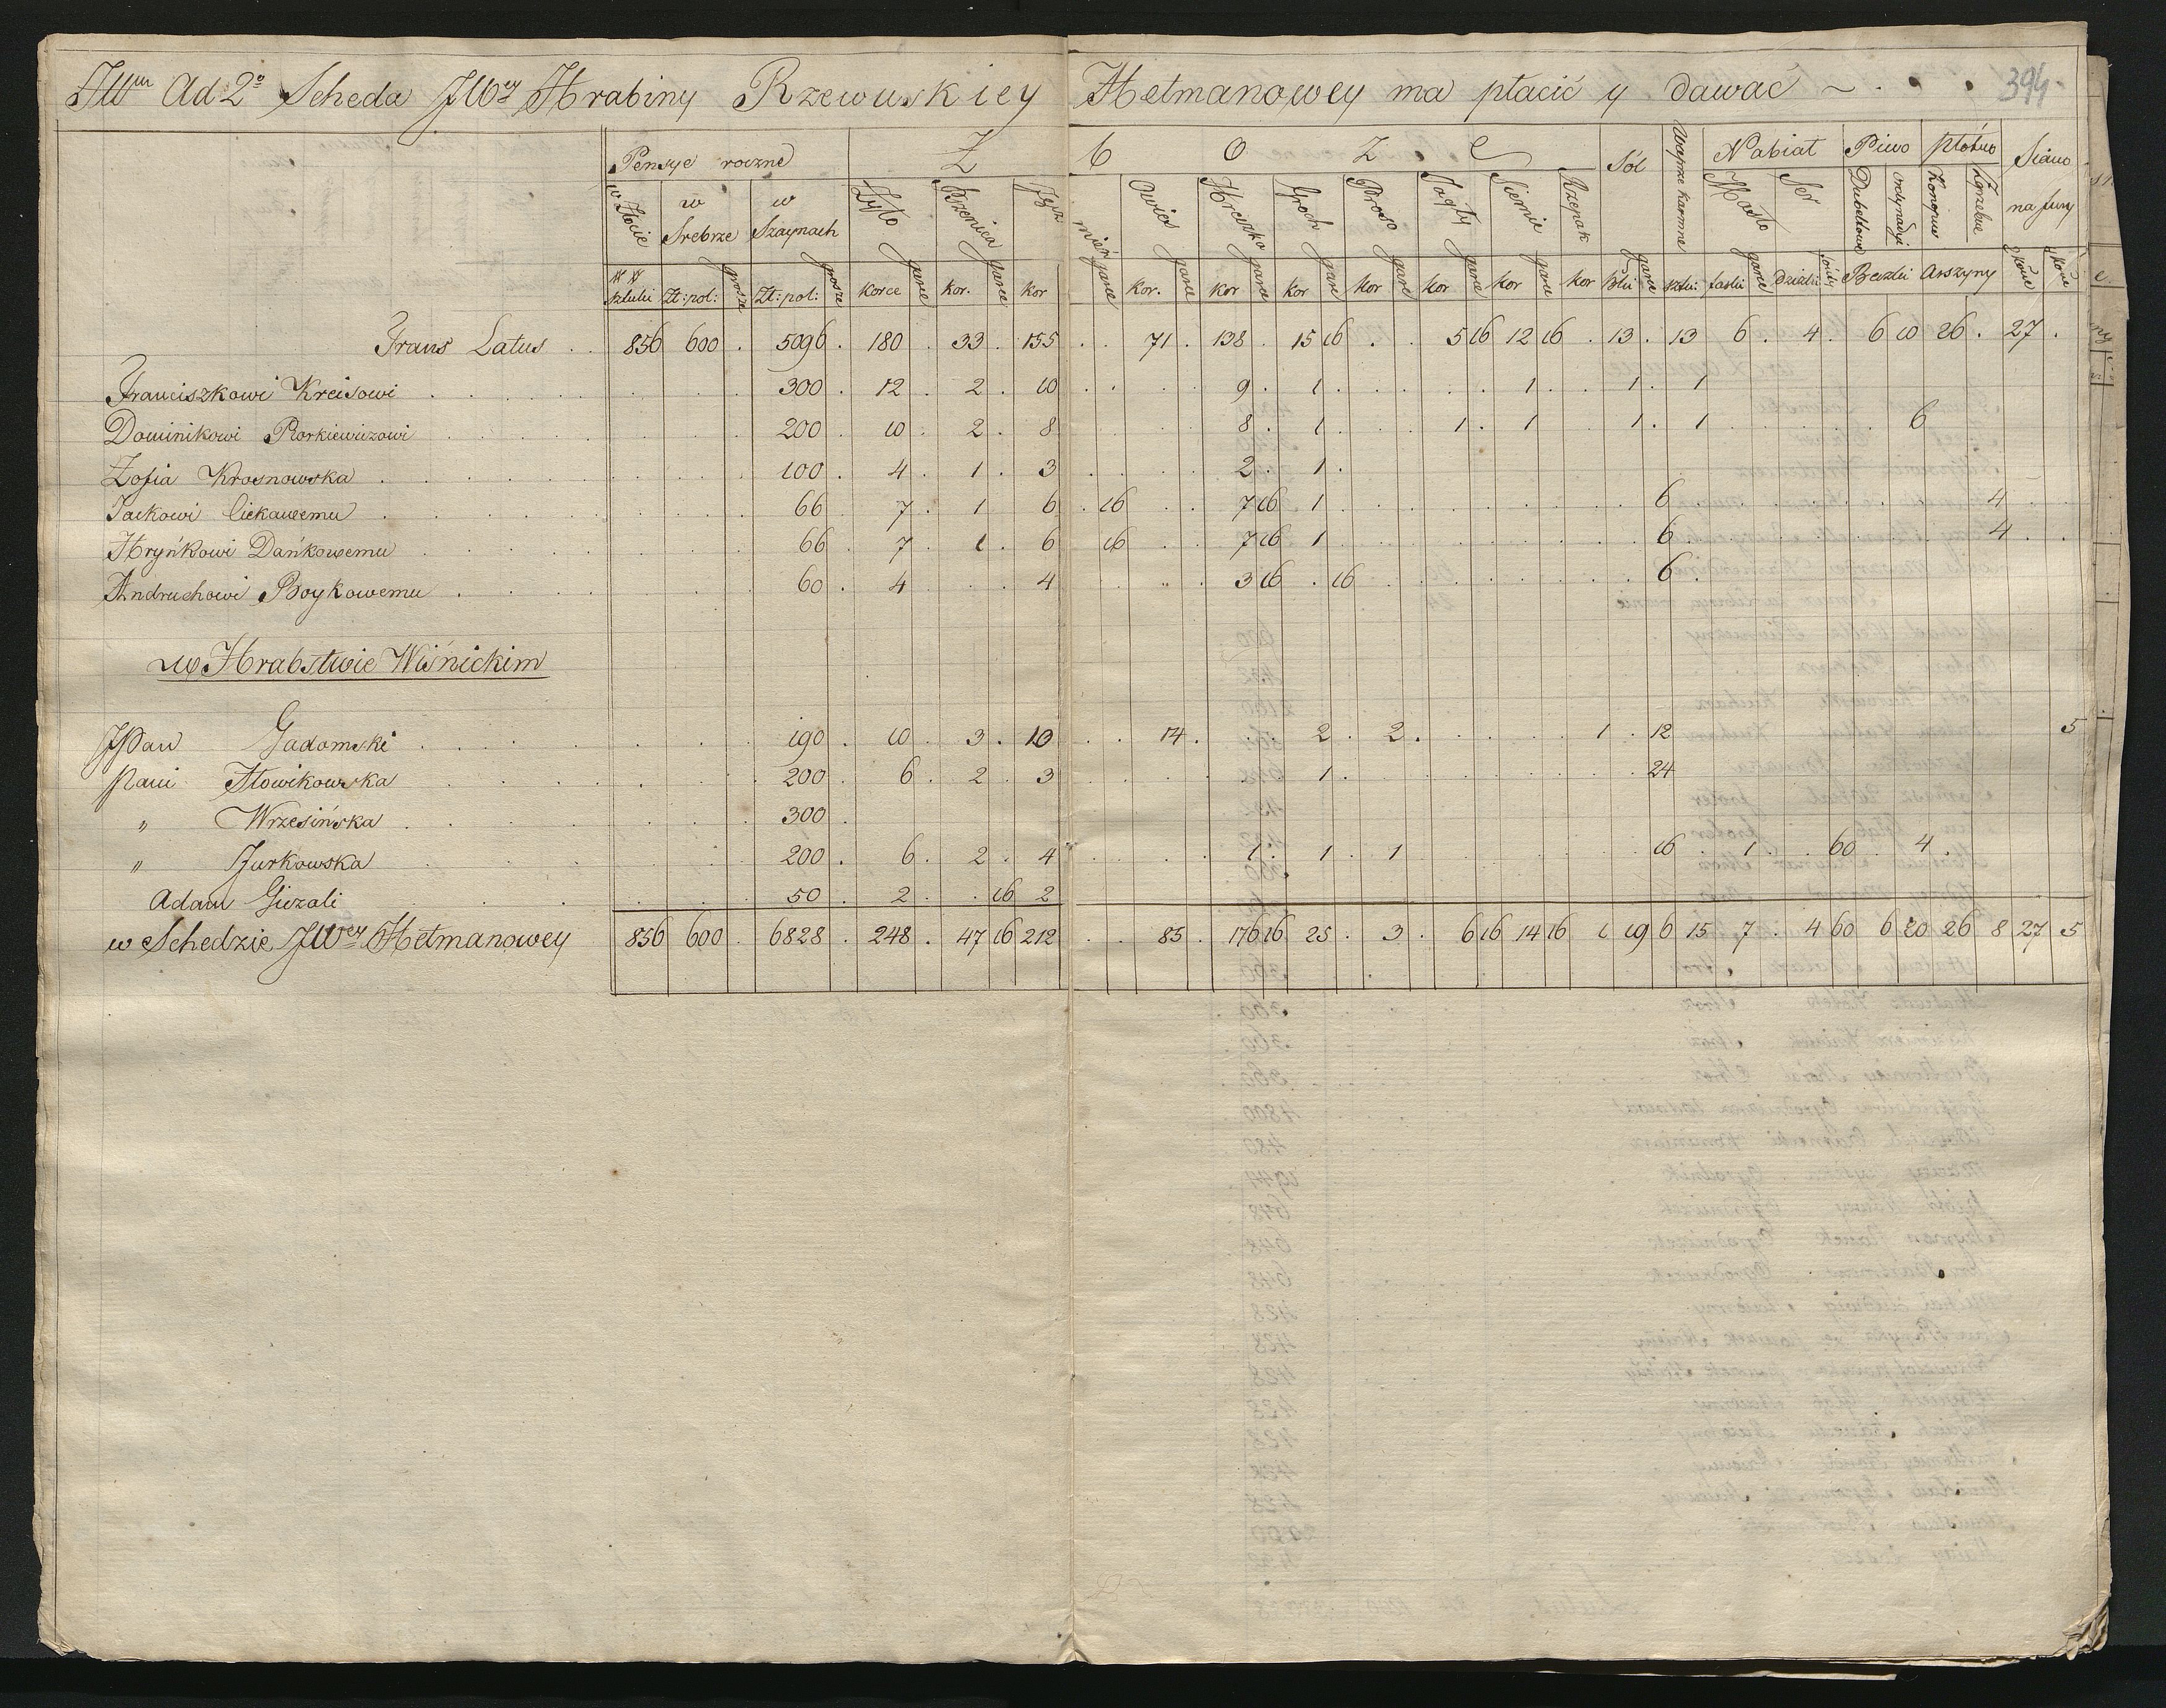 Ad 2° Scheda JWey Hrabiny Rzewuskiey Hetmanowey ma płacić y dawać 394
Pensye roczne Z b o ż e Sól Wieprze karmne Nabiał Piwo Płótno Siano na fury
w Złocie w Srebrze w Szaynach Żyto Pszenica Jęczmień Owies Hreczka Groch Proso Jagły Siemie Rzepak Masło Ser Dubeltowe ordynaryi Konopne Zgrzebne
sztuki Zł: pol: grosze Zł: pol: grosze korce garce kor. garce kor garce kor. garce kor garce kor garce kor garce kor garce kor garce kor garce sztu: faski garce Beczki Arszyny
Trans Latus 856 600 . 5096 . 180 . 33 . 155 . . 71 . 138 . 15 16 . . 5 16 12 16 . 13 . 13 6 . 4 . 6 10 26 . 27 .
Franciszkowi Kreisowi 300 . 12 . 2 . 10 9 . 1 1 1 . 1
Dominikowi Piorkiewiczowi 200 . 10 . 2 . 8 8 . 1 1 . 1 1 . 1 6
Zofia Krosnowska 100 . 4 . 1 . 3 2 . 1 .
Jackowi Ciekawemu 66 . 7 . 1 . 6 . 16 7 16 1 6 4
Hryńkowi Dańkowemu 66 . 7 . 1 . 6 16 7 16 1 6 4
Andruchowi Boykowemu 60 . 4 . . . 4 3 16 . 16 6
w Hrabstwie Wiśnickim
JPan Gadomski 190 . 10 . 3 . 10 . . 14 . 2 . 2 . 1 . 12 5
Pani Słowikowska 200 . 6 . 2 . 3 1 . 24
" Wrzesińska 300 .
" Jurkowska 200 . 6 . 2 . 4 1 . 1 . 1 16 . 1 . 60 . 4 .
Adam Giezali 50 . 2 . . 16 2
w Schedzie JWey Hetmanowey 856 600 . 6828 . 248 . 47 16 212 . . 85 . 176 16 25 . 3 . 6 16 14 16 1 19 6 15 7 . 4 60 6 20 26 8 27 5